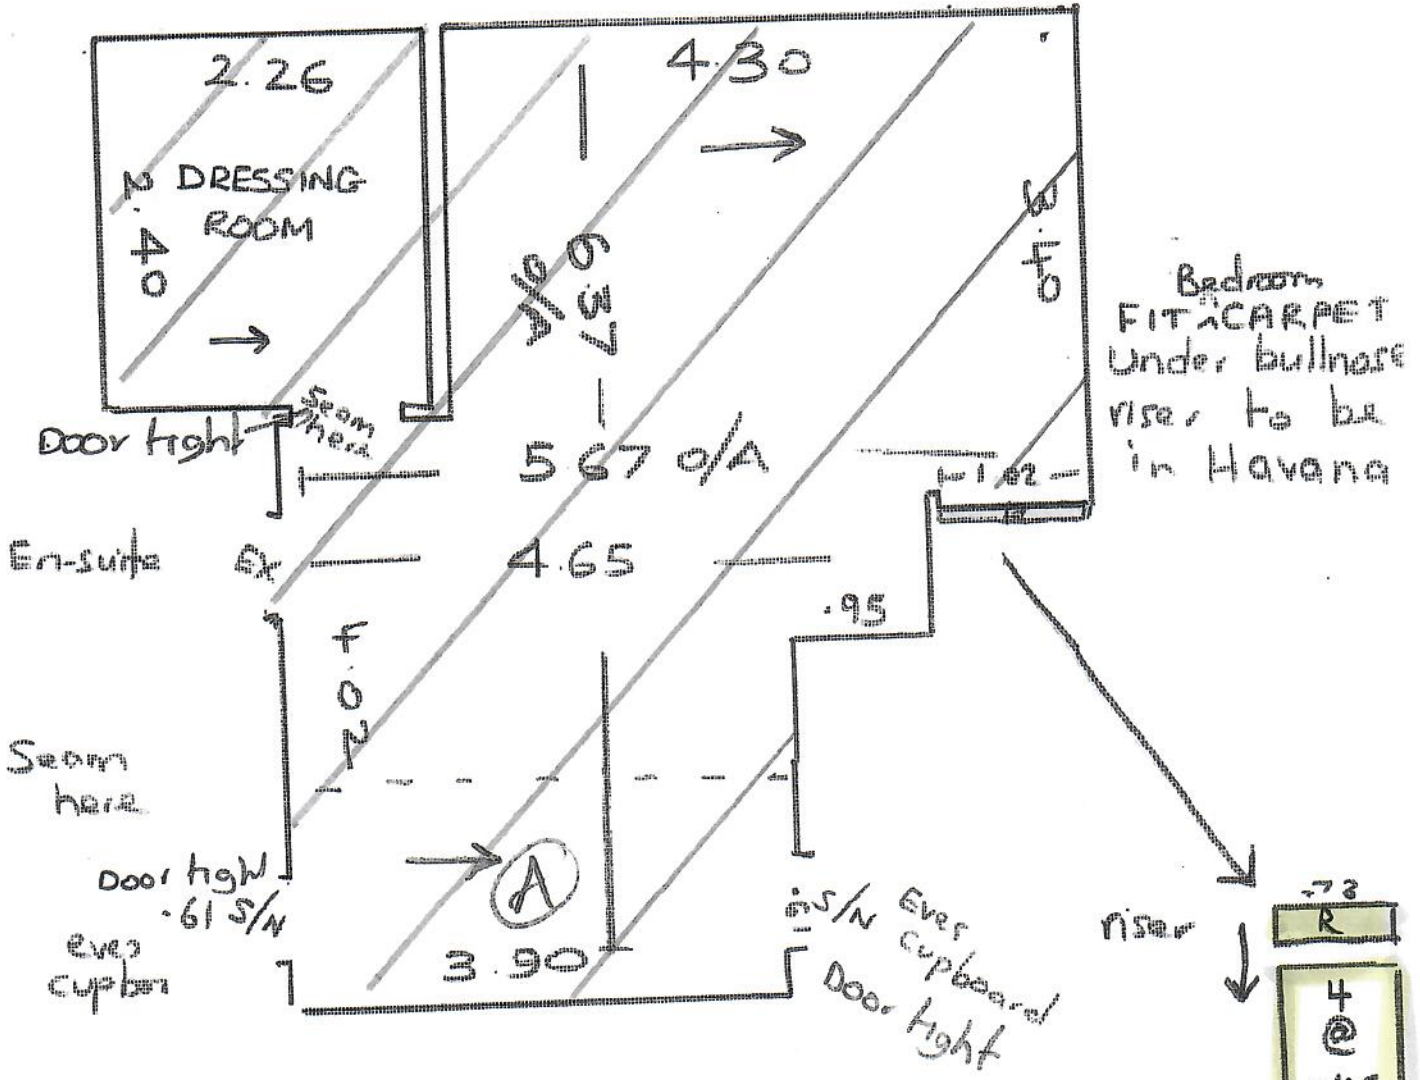 2.26
4.30
2.40
DRESSING
ROOM
6.37
O/A
3.70
Bedroom
FIT ^ CARPET
Under bullnose
riser to be
in Havana
Door tight
Seam
here
5.67 O/A
1.02
En-suite
Ex
4.65
.95
Seam
here
Door tight
.61 S/N
eves
cupbor
A
3.90
S/N
Eves
Cupboard
Door tight
riser
.73
R
4
@